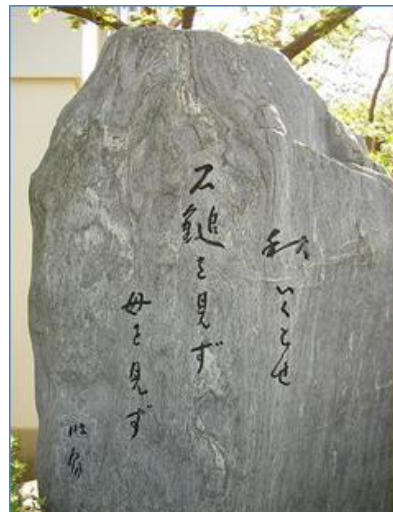 秋いくとせ
石鎚を見ず
母を見ず
波郷